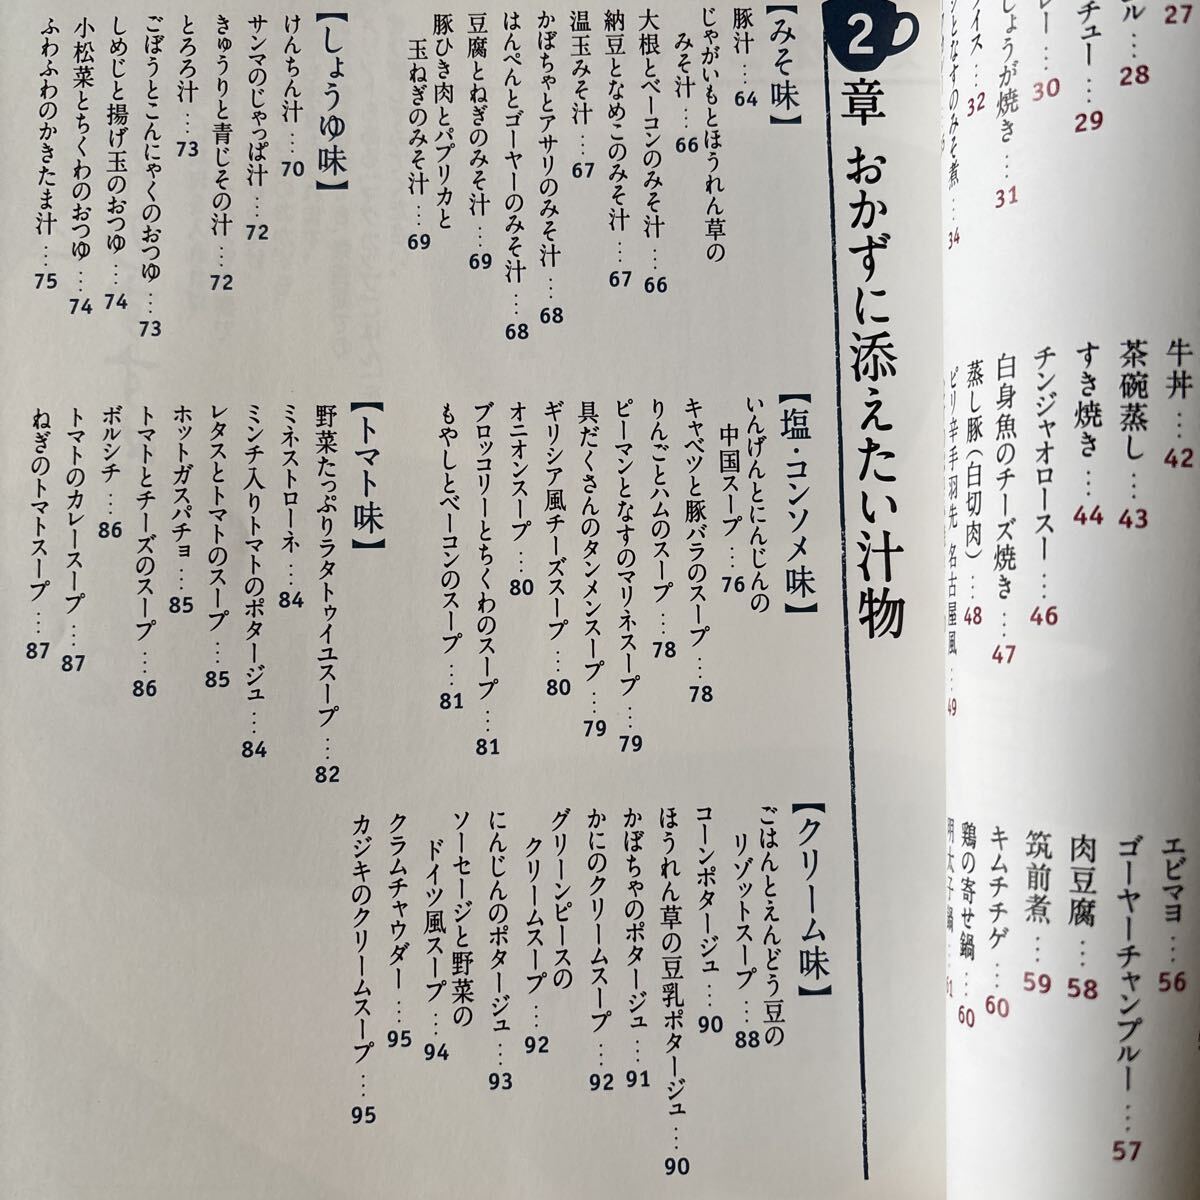 27
ル…28
チュー…29
レー…30
しょうが焼き…31
ライス…32
となすのみそ煮…34
牛丼…42
茶碗蒸し…43
すき焼き…44
チンジャオロースー…46
白身魚のチーズ焼き…47
蒸し豚(白切肉)…48
ピリ辛手羽先 名古屋風…49
エビマヨ…56
ゴーヤーチャンプルー…57
肉豆腐…58
筑前煮…59
キムチチゲ…60
鶏の寄せ鍋…60
明太子鍋…61
2章 おかずに添えたい汁物
【みそ味】
豚汁…64
じゃがいもとほうれん草の
みそ汁…66
大根とベーコンのみそ汁…66
納豆となめこのみそ汁…67
温玉みそ汁…67
かぼちゃとアサリのみそ汁…68
はんぺんとゴーヤーのみそ汁…68
豆腐とねぎのみそ汁…69
豚ひき肉とパプリカと
玉ねぎのみそ汁…69
【しょうゆ味】
けんちん汁…70
サンマのじゃっぱ汁…72
きゅうりと青じその汁…72
とろろ汁…73
ごぼうとこんにゃくのおつゆ…73
しめじと揚げ玉のおつゆ…74
小松菜とちくわのおつゆ…74
ふわふわのかきたま汁…75
【塩・コンソメ味】
いんげんとにんじんの
中国スープ…76
キャベツと豚バラのスープ…78
りんごとハムのスープ…78
ピーマンとなすのマリネスープ…79
具だくさんのタンメンスープ…79
ギリシア風チーズスープ…80
オニオンスープ…80
ブロッコリーとちくわのスープ…81
もやしとベーコンのスープ…81
【トマト味】
野菜たっぷりラタトゥイユスープ…82
ミネストローネ…84
ミンチ入りトマトのポタージュ…84
レタスとトマトのスープ…85
ホットガスパチョ…85
トマトとチーズのスープ…86
ボルシチ…86
トマトのカレースープ…87
ねぎのトマトスープ…87
【クリーム味】
ごはんとえんどう豆の
リゾットスープ…88
コーンポタージュ…90
ほうれん草の豆乳ポタージュ…90
かぼちゃのポタージュ…91
かにのクリームスープ…92
グリーンピースの
クリームスープ…92
にんじんのポタージュ…93
ソーセージと野菜の
ドイツ風スープ…94
クラムチャウダー…95
カジキのクリームスープ…95